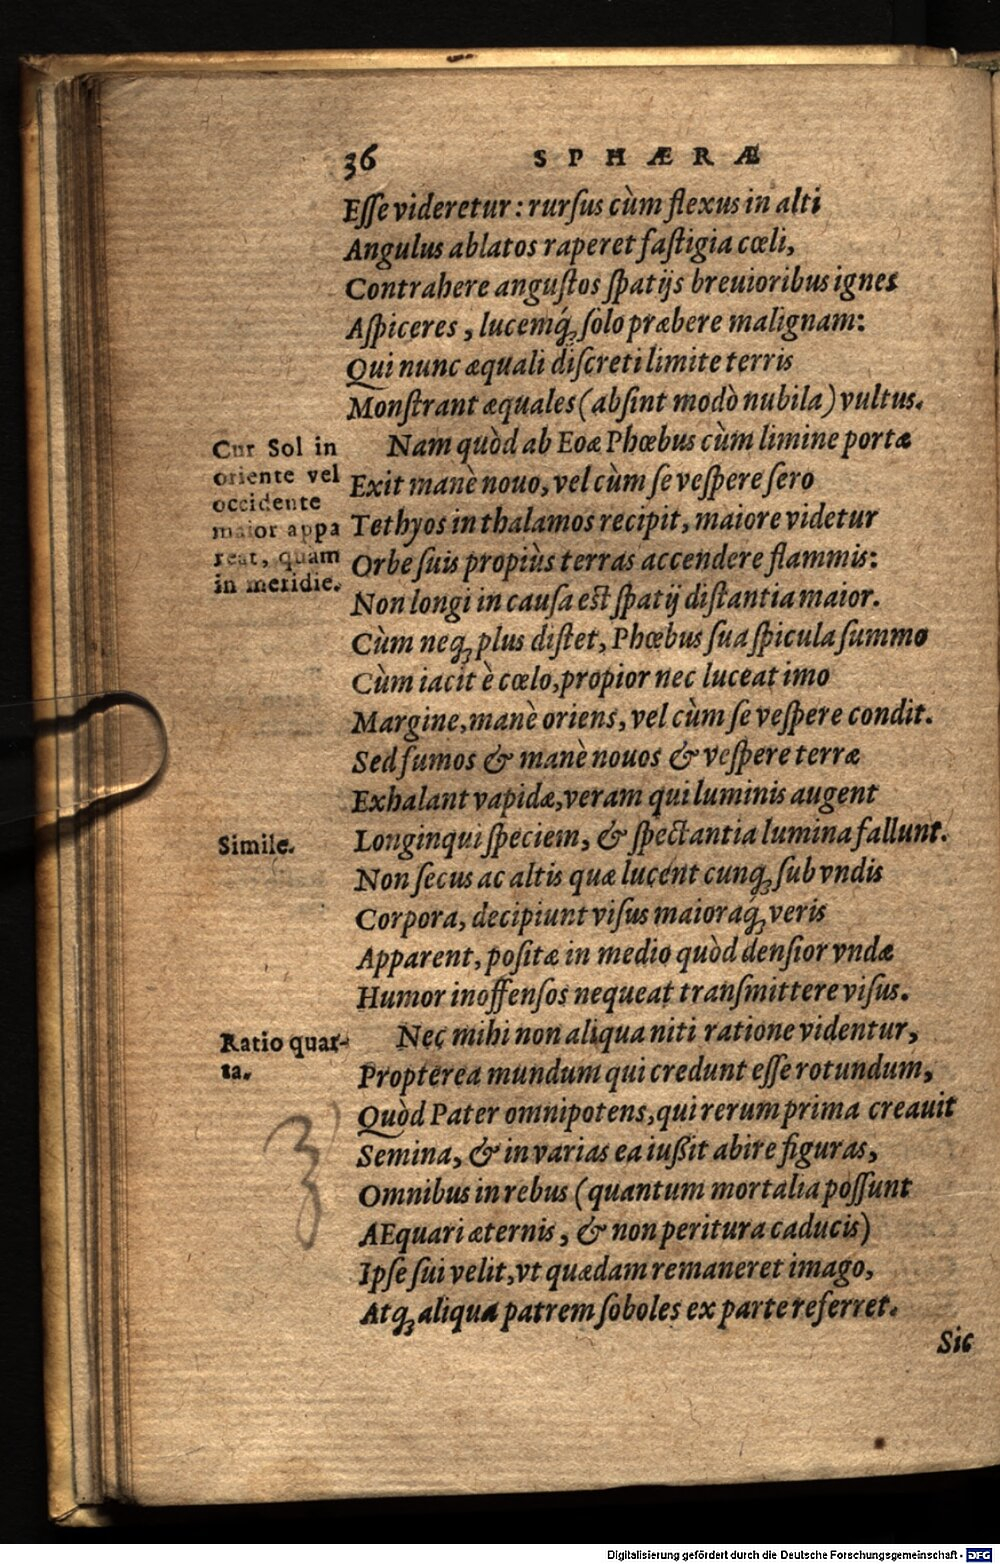 36 SPHÆRÆ
Eſſe videretur: rurſus cùm flexus in alti
Angulus ablatos raperet faſtigia cœli,
Contrahere anguſtos ſpatijs breuioribus ignes
Aſpiceres, lucemq́ꝫ ſolo præbere malignam:
Qui nunc æquali diſcreti limite terris
Monſtrant æquales (abſint modò nubila) vultus.
Nam quòd ab Eoæ Phœbus cùm limine portæ
Exit manè nouo, vel cùm ſe veſpere ſero
Tethyos in thalamos recipit, maiore videtur
Orbe ſuis propiùs terras accendere flammis:
Non longi in cauſa eſt ſpatij diſtantia maior.
Cùm neqꝫ plus diſtet, Phœbus ſua ſpicula ſummo
Cùm iacit è cœlo, propior nec luceat imo
Margine, manè oriens, vel cùm ſe veſpere condit.
Sed fumos & manè nouos & veſpere terræ
Exhalant vapidæ, veram qui luminis augent
Longinqui ſpeciem, & ſpectantia lumina fallunt.
Non ſecus ac altis quæ lucent cunqꝫ ſub vndis
Corpora, decipiunt viſus maioraq́ꝫ veris
Apparent, poſitæ in medio quòd denſior vndæ
Humor inoffenſos nequeat tranſmittere viſus.
Nec mihi non aliqua niti ratione videntur,
Propterea mundum qui credunt eſſe rotundum,
Quòd Pater omnipotens, qui rerum prima creauit
Semina, & in varias ea iußit abire figuras,
Omnibus in rebus (quantum mortalia poſſunt
AEquari æternis, & non peritura caducis)
Ipſe ſui velit, vt quædam remaneret imago,
Atqꝫ aliqua patrem ſoboles ex parte referret.
Sic
Cur Sol in
oriente vel
occidente
maior appa
reat, quam
in meridie.
Simile.
Ratio quar-
ta.
Digitalisierung gefördert durch die Deutsche Forschungsgemeinschaft - DFG